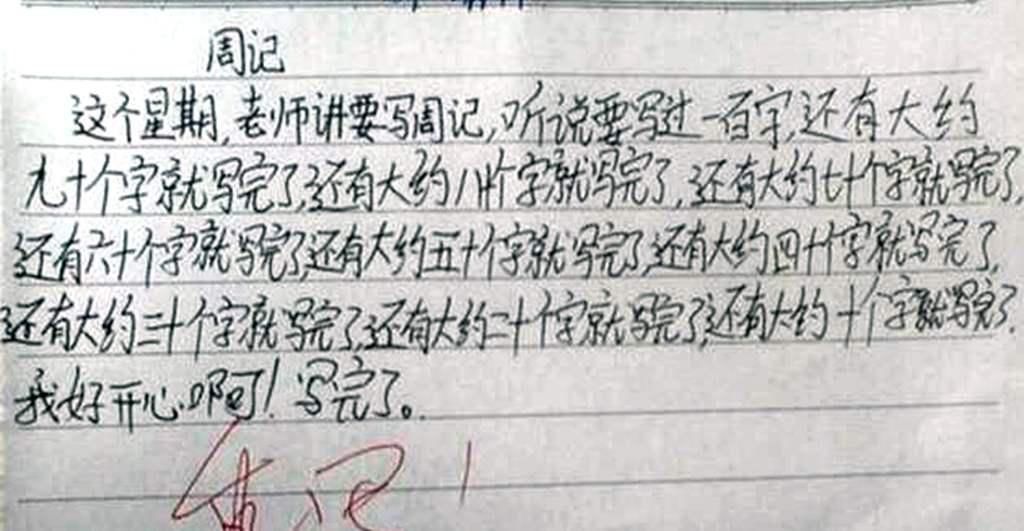 周记
这个星期,老师讲要写周记,听说要写过一百字,还有大约
九十个字就写完了,还有大约八十个字就写完了,还有大约七十个字就写完了,
还有六十个字就写完了,还有大约五十个字就写完了,还有大约四十个字就写完了,
还有大约三十个字就写完了,还有大约二十个字就写完了,还有大约十个字就写完了.
我好开心啊!写完了。